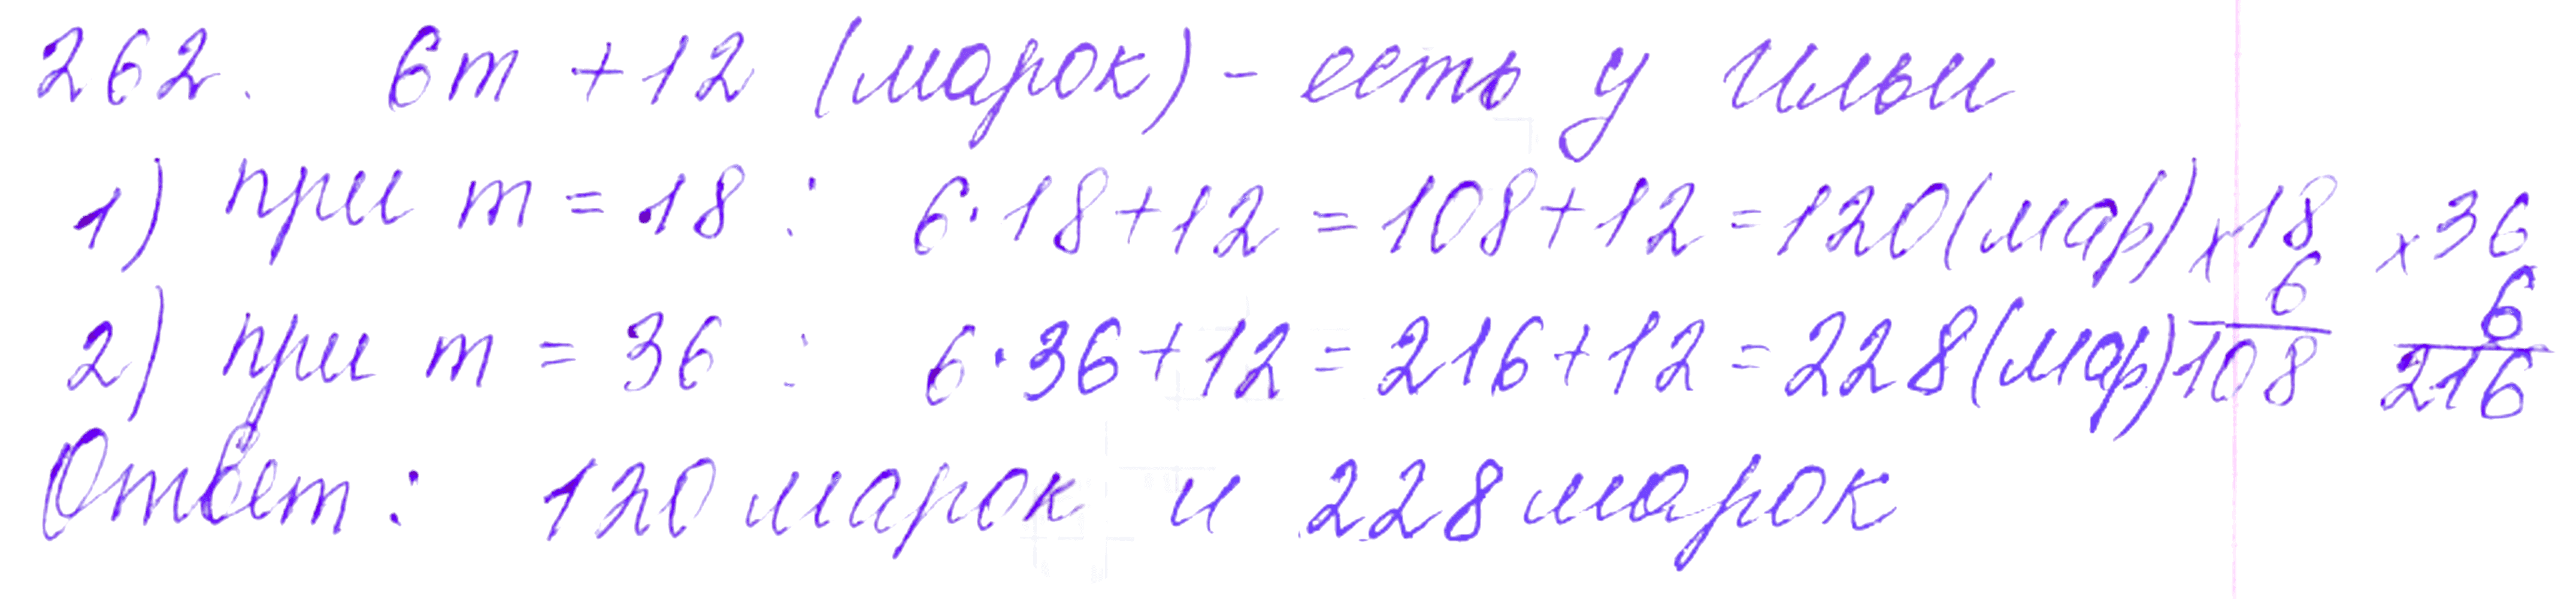 262. 6m + 12 (марок) - есть у Ильи
1) при m = 18 : 6·18+12 = 108+12 = 120 (мар)
2) при m = 36 : 6·36+12 = 216+12 = 228 (мар)
×18
6
108
×36
6
216
Ответ: 120 марок и 228 марок